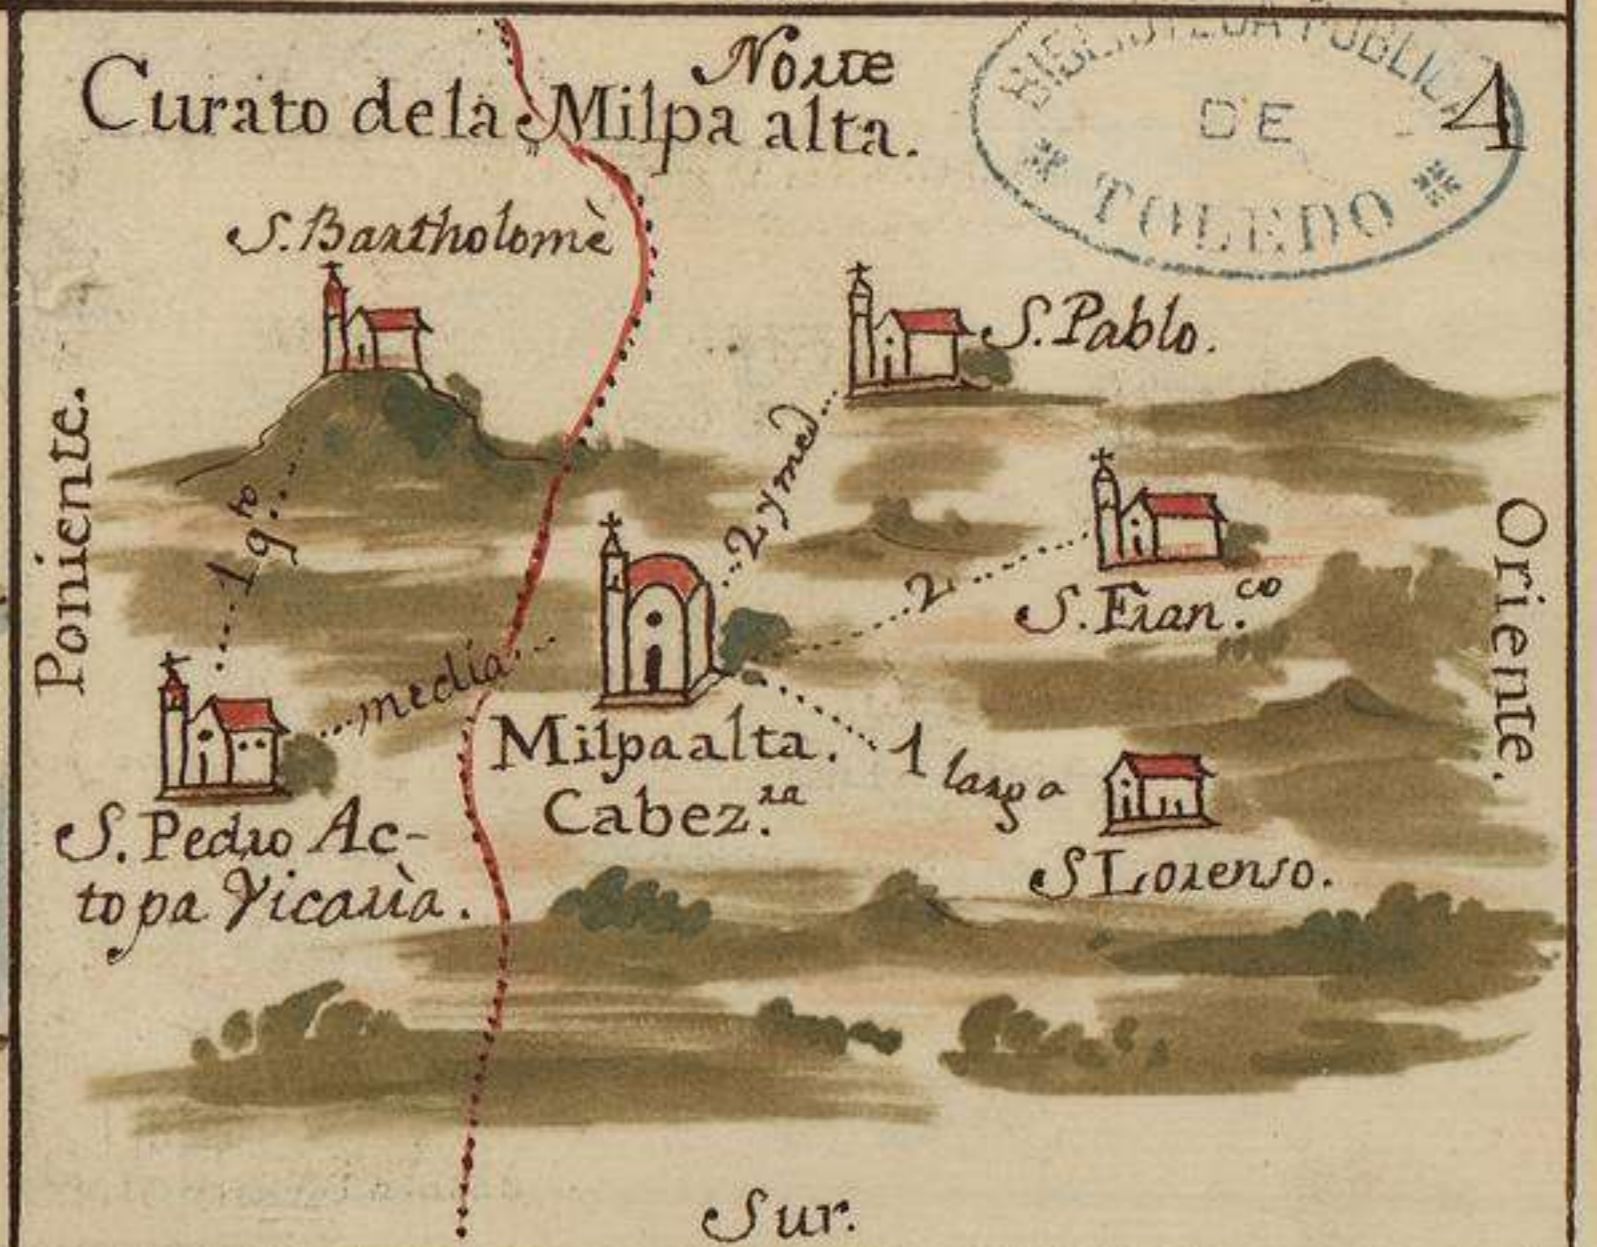 Norte
Curato de la Milpa alta.
BIBLIOTECA PUBLICA
DE
TOLEDO
4
S. Bartholomè
S. Pablo.
Poniente.
2 y med
1 q.to
2
S. Fran.co
Oriente.
media
Milpa alta.
Cabez.ra
1 larga
S. Pedro Ac-
topa Vicarìa.
S Lorenso.
Sur.